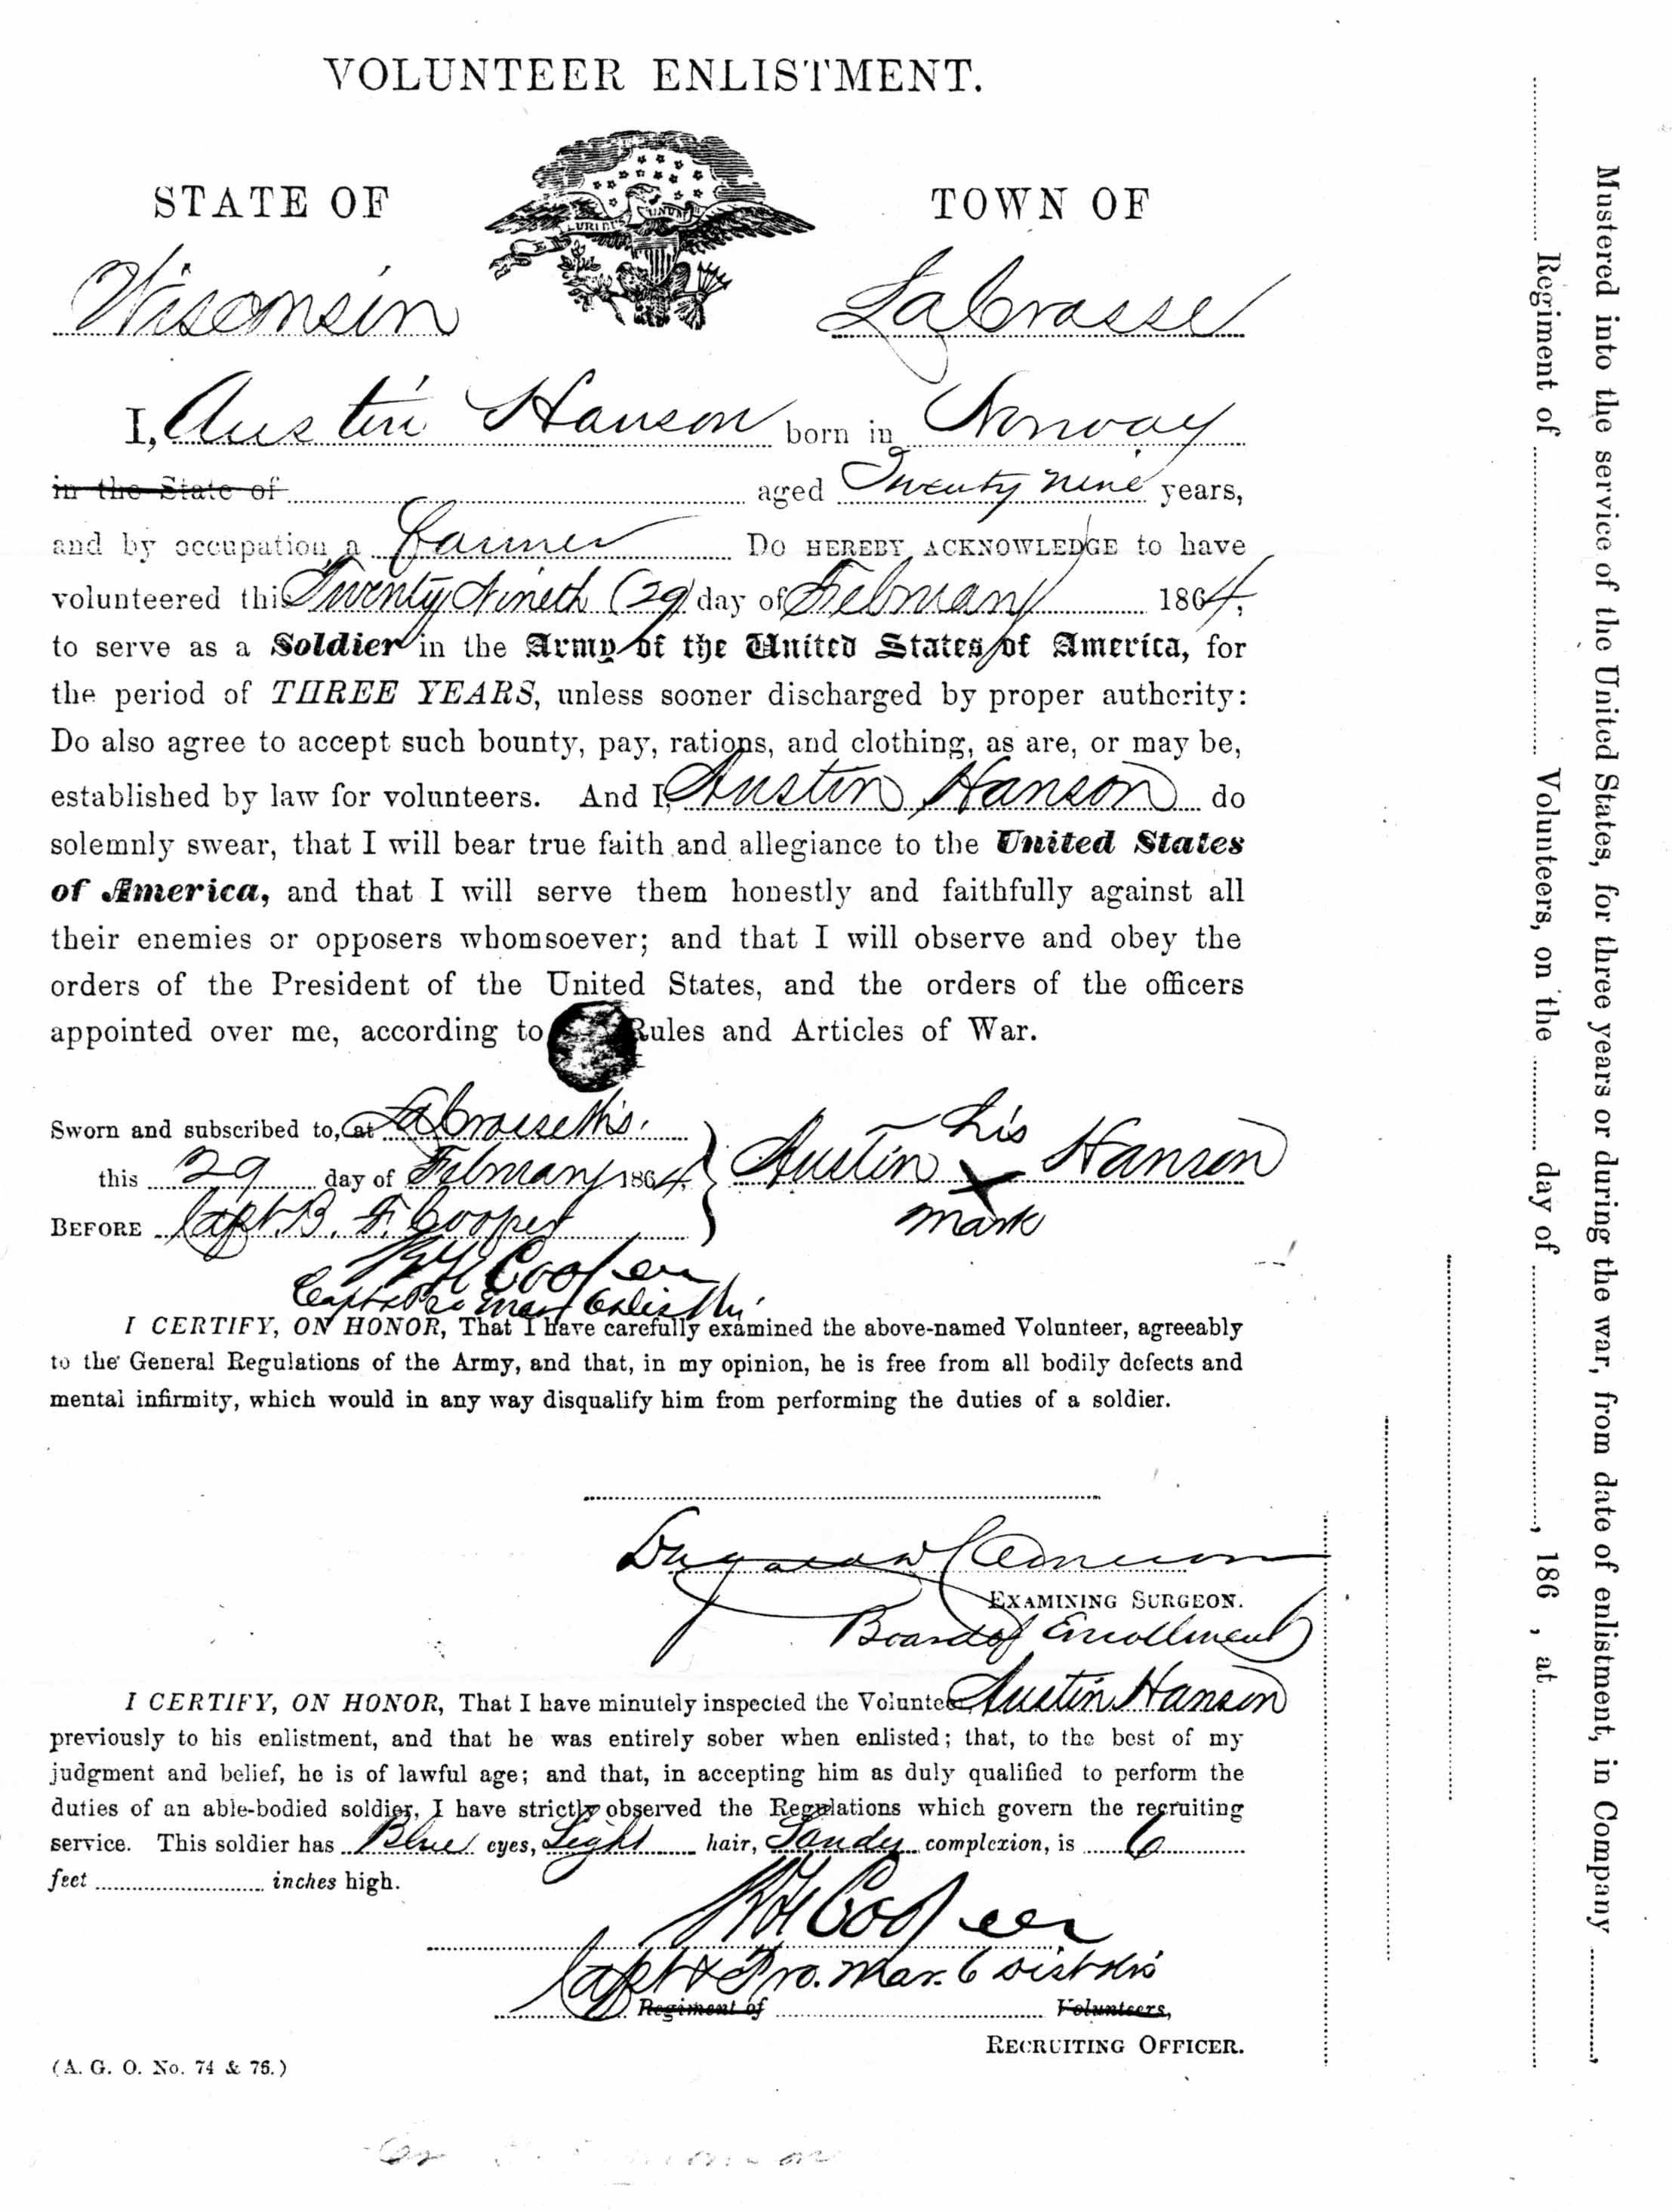 VOLUNTEER ENLISTMENT.
STATE OF
TOWN OF
Wisconsin
LaCrosse
I, Austin Hanson born in Norway
in the State of aged Twenty nine years,
and by occupation a Farmer Do HEREBY ACKNOWLEDGE to have
volunteered this Twenty Nineth (29) day of February 1864,
to serve as a Soldier in the Army of the United States of America, for
the period of THREE YEARS, unless sooner discharged by proper authority:
Do also agree to accept such bounty, pay, rations, and clothing, as are, or may be,
established by law for volunteers. And I, Austin Hanson do
solemnly swear, that I will bear true faith and allegiance to the United States
of America, and that I will serve them honestly and faithfully against all
their enemies or opposers whomsoever; and that I will observe and obey the
orders of the President of the United States, and the orders of the officers
appointed over me, according to Rules and Articles of War.
Sworn and subscribed to, at LaCrosse Wis.
this 29 day of February 1864,
BEFORE Capt. B. F. Cooper
Austin his X mark Hanson
B F Cooper
Capt & Pro Mar 6 Dist Wis
I CERTIFY, ON HONOR, That I have carefully examined the above-named Volunteer, agreeably
to the General Regulations of the Army, and that, in my opinion, he is free from all bodily defects and
mental infirmity, which would in any way disqualify him from performing the duties of a soldier.
Cameron
EXAMINING SURGEON.
Board of Enrollment
I CERTIFY, ON HONOR, That I have minutely inspected the Volunteer, Austin Hanson
previously to his enlistment, and that he was entirely sober when enlisted; that, to the best of my
judgment and belief, he is of lawful age; and that, in accepting him as duly qualified to perform the
duties of an able-bodied soldier, I have strictly observed the Regulations which govern the recruiting
service. This soldier has Blue eyes, Light hair, Sandy complexion, is 6
feet inches high.
B F Cooper
Capt & Pro. Mar. 6 Dist Wis
Regiment of Volunteers,
RECRUITING OFFICER.
(A. G. O. No. 74 & 76.)
Mustered into the service of the United States, for three years or during the war, from date of enlistment, in Company ,
Regiment of Volunteers, on the day of , 186 , at